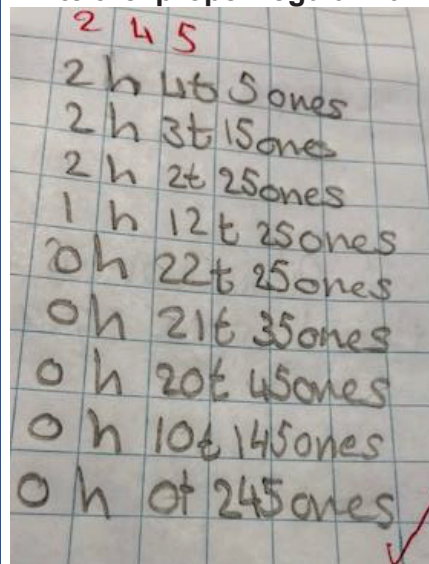 2 4 5
2 h 4t 5 ones
2 h 3t 15ones
2 h 2t 25ones
1 h 12t 25ones
0h 22t 25ones
0h 21t 35ones
0 h 20t 45ones
0 h 10t 145ones
0 h 0t 245ones